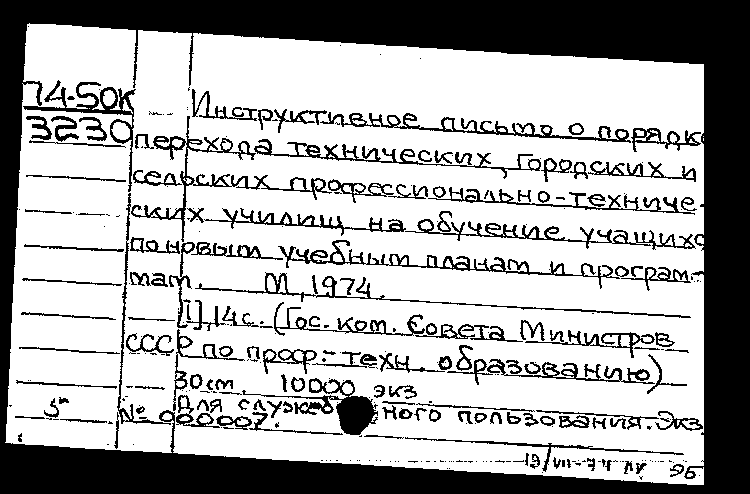 74-50к
3230
Инструктивное письмо о порядке
перехода технических, городских и
сельских профессионально-техниче-
ских училищ на обучение учащихс
по новым учебным планам и програм-
мам. М., 1974.
[1], 14 с. (Гос. ком. Совета Министров
СССР по проф.-техн. образованию)
30 см. 10000 экз.
Для служебного пользования. Экз.
№ 000007.
19/VII-74